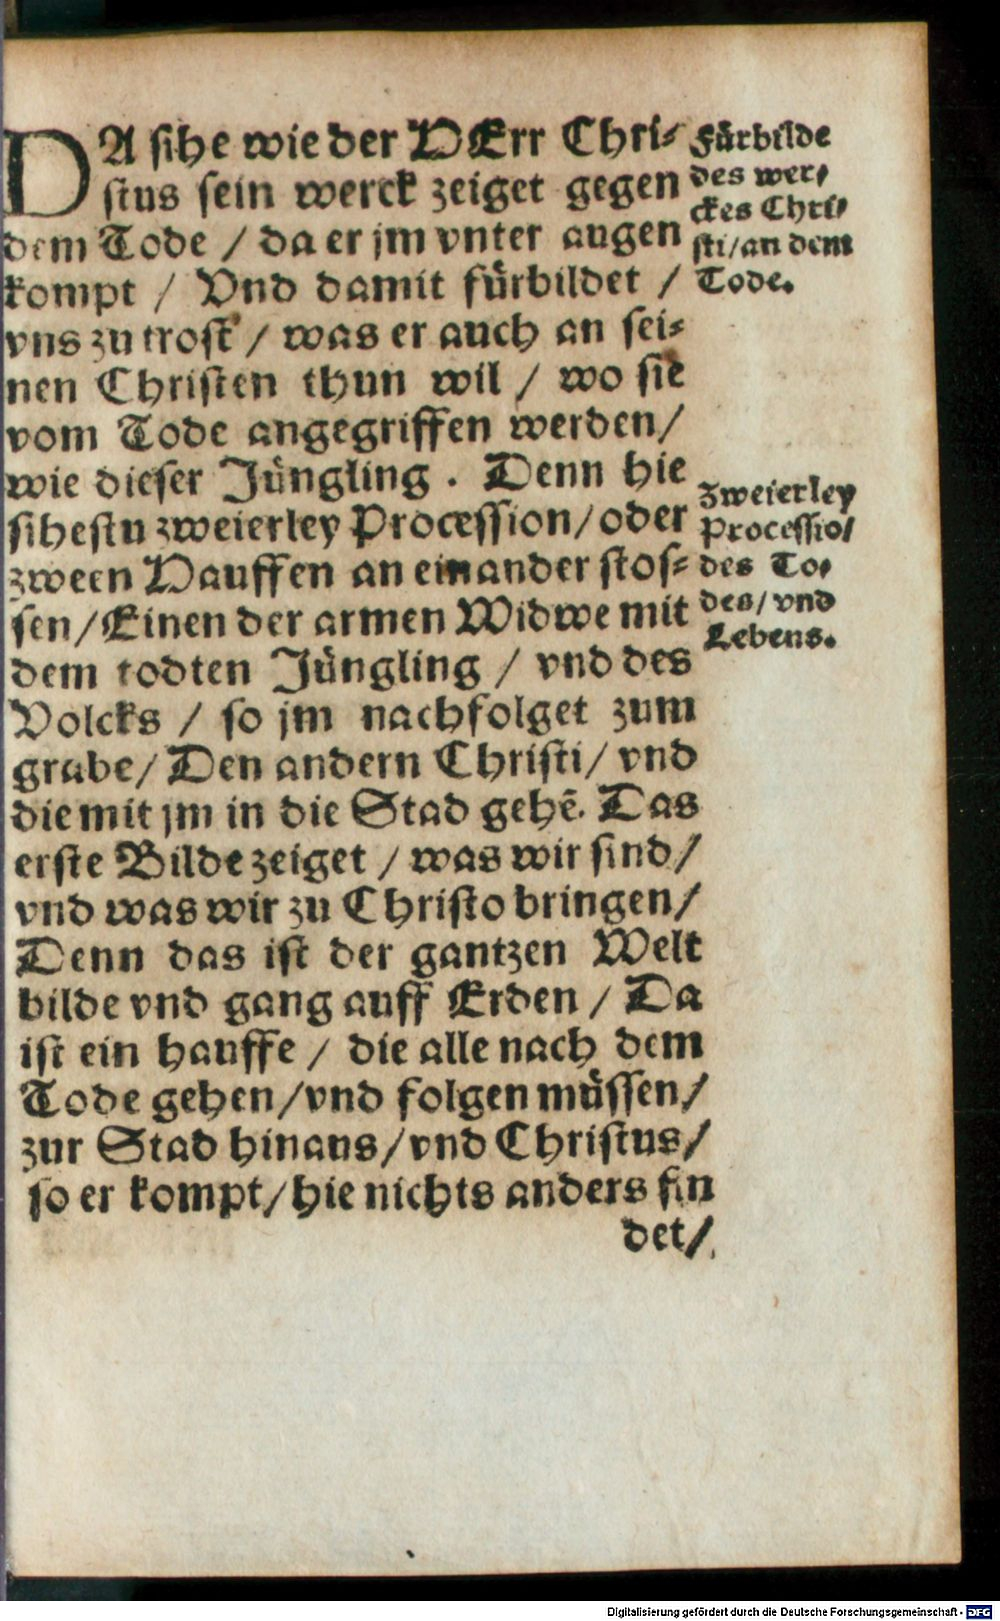 DA sihe wie der HErr Chri⸗
stus sein werck zeiget gegen
dem Tode / da er jm vnter augen
kompt / Vnd damit fürbildet /
vns zu trost / was er auch an sei⸗
nen Christen thun wil / wo sie
vom Tode angegriffen werden/
wie dieser Jüngling . Denn hie
sihestu zweierley Procession/oder
zween Hauffen an einander stos⸗
sen/Einen der armen Widwe mit
dem todten Jüngling / vnd des
Volcks / so jm nachfolget zum
grabe/ Den andern Christi/ vnd
die mit jm in die Stad gehē. Das
erste Bilde zeiget / was wir sind/
vnd was wir zu Christo bringen/
Denn das ist der gantzen Welt
bilde vnd gang auff Erden / Da
ist ein hauffe / die alle nach dem
Tode gehen/vnd folgen müssen/
zur Stad hinaus/vnd Christus/
so er kompt/hie nichts anders fin
det/
Fürbilde
des wer⸗
ckes Chri⸗
sti/an dem
Tode.
Zweierley
Processio/
des To⸗
des/ vnd
Lebens.
Digitalisierung gefördert durch die Deutsche Forschungsgemeinschaft - DFG